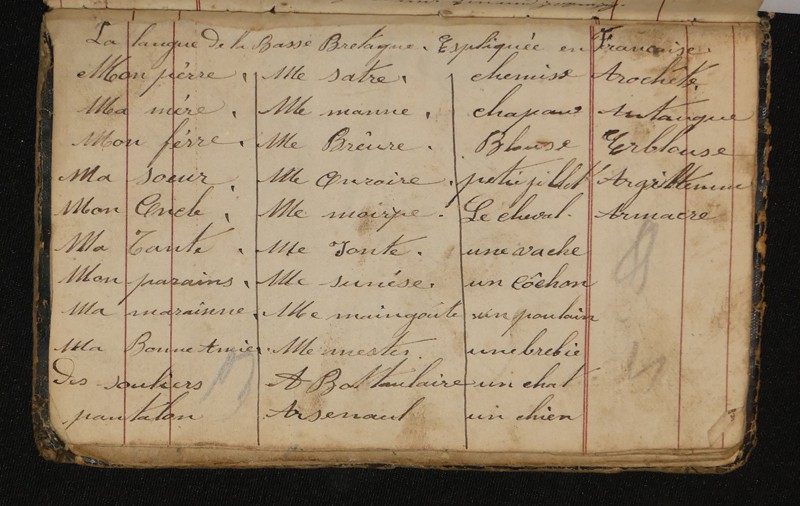 La langue De la Basse Bretagne. Espliquée en Francaise.
Mon pérre, Me satre, chemise Arochets,
Ma mére, Me manne, chapaux Antauque
Mon férre, Me Breure. Blouse Erblouse
Ma Soeur Me Quroire, petit gillet Argilltemme
Mon Oncle, Me moirpe. Le cheval. Armacre
Ma Tante, Me Tonte. une vache
Mon parains, Me sunése. un côchon
Ma marainne, Me maingoute un poulain
Ma Bonne Amie, Me mestes. une brebie
Des souliers A Bottaulaire un chat
pantalon Arsenaul un chien